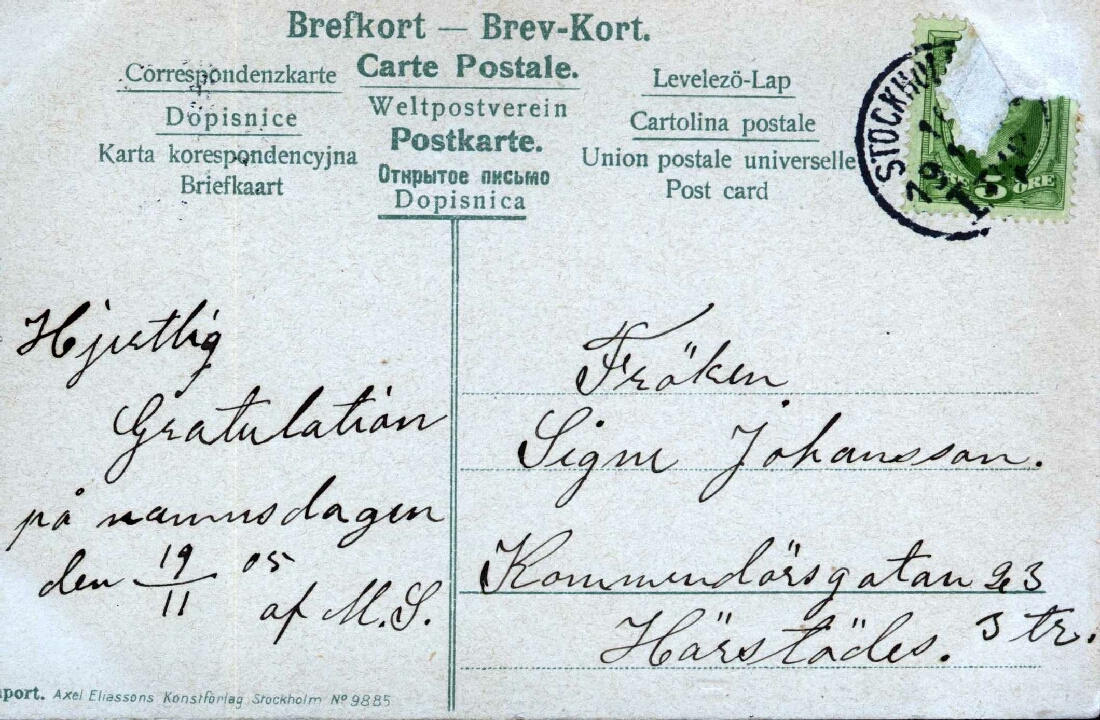 Brefkort — Brev-Kort.
Correspondenzkarte
Carte Postale.
Levelezö-Lap
Dopisnice
Weltpostverein
Cartolina postale
Karta korespondencyjna
Postkarte.
Union postale universelle
Briefkaart
Открытое письмо
Post card
Dopisnica
STOCKHOL
19
5 ÖRE
Hjertlig
Gratulation
på namnsdagen
den 19/11 05
af M.S.
Fröken
Signe Johansson.
Kommendörsgatan 23
3 tr.
Härstädes.
port. Axel Eliassons Konstförlag Stockholm Nº 9885